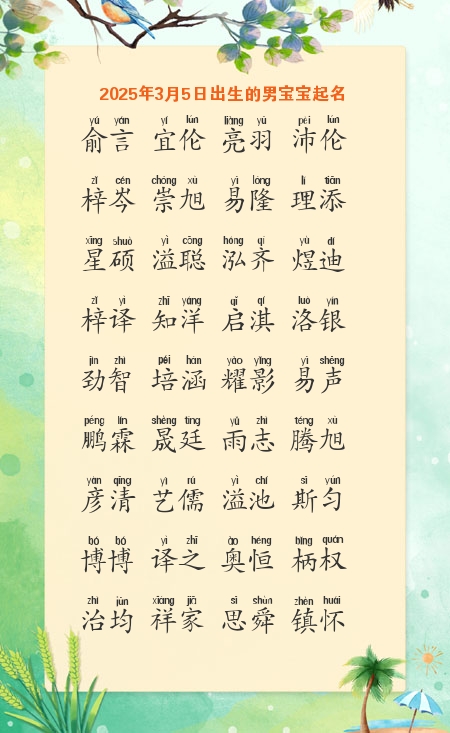 2025年3月5日出生的男宝宝起名
yú yán yí lún liàng yǔ pèi lún
俞言 宜伦 亮羽 沛伦
zǐ cén chóng xù yì lóng lǐ tiān
梓岑 崇旭 易隆 理添
xīng shuò yì cōng hóng qí yù dí
星硕 溢聪 泓齐 煜迪
zǐ yì zhī yáng qǐ qí luò yín
梓译 知洋 启淇 洛银
jìn zhì péi hán yào yǐng yì shēng
劲智 培涵 耀影 易声
péng lín shèng tíng yǔ zhì téng xù
鹏霖 晟廷 雨志 腾旭
yàn qīng yì rú yì chí sī yún
彦清 艺儒 溢池 斯匀
bó bó yì zhī ào héng bǐng quán
博博 译之 奥恒 柄权
zhì jūn xiáng jiā sī shùn zhèn huái
治均 祥家 思舜 镇怀